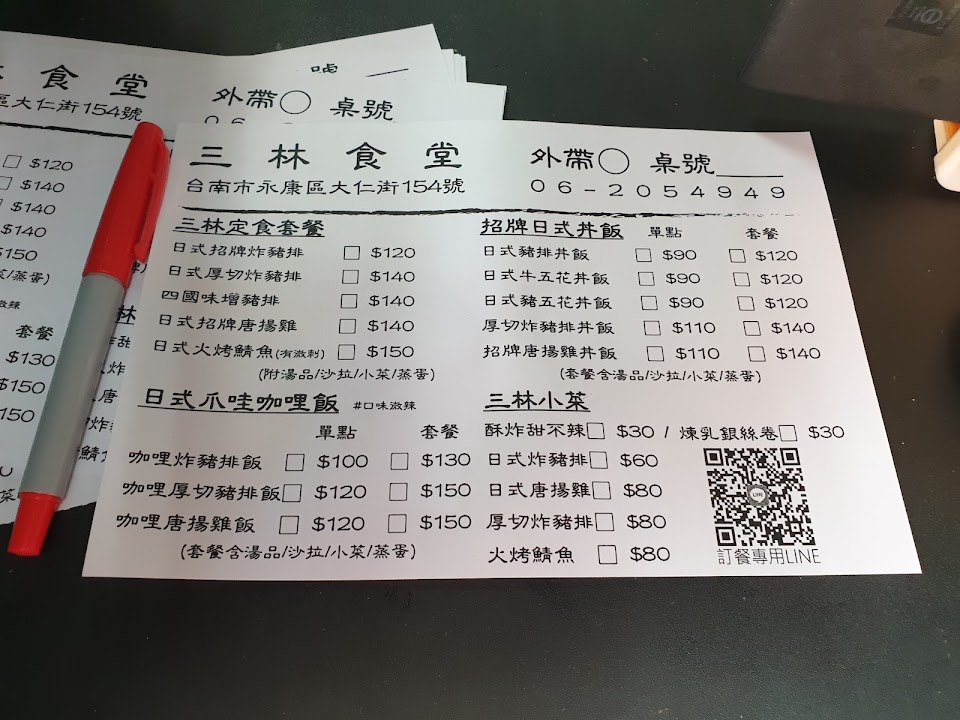 三林食堂 外帶○ 桌號____
台南市永康區大仁街154號 06-2054949
三林定食套餐
日式招牌炸豬排 □ $120
日式厚切炸豬排 □ $140
四國味增豬排 □ $140
日式招牌唐揚雞 □ $140
日式火烤鯖魚(有微刺) □ $150
(附湯品/沙拉/小菜/蒸蛋)
日式爪哇咖哩飯 #口味微辣
單點 套餐
咖哩炸豬排飯 □ $100 □ $130
咖哩厚切豬排飯 □ $120 □ $150
咖哩唐揚雞飯 □ $120 □ $150
(套餐含湯品/沙拉/小菜/蒸蛋)
招牌日式丼飯 單點 套餐
日式豬排丼飯 □ $90 □ $120
日式牛五花丼飯 □ $90 □ $120
日式豬五花丼飯 □ $90 □ $120
厚切炸豬排丼飯 □ $110 □ $140
招牌唐揚雞丼飯 □ $110 □ $140
(套餐含湯品/沙拉/小菜/蒸蛋)
三林小菜
酥炸甜不辣 □ $30 / 煉乳銀絲卷 □ $30
日式炸豬排 □ $60
日式唐揚雞 □ $80
厚切炸豬排 □ $80
火烤鯖魚 □ $80
LINE
訂餐專用LINE
食堂 外帶○ 桌號
區大仁街154號
□ $120
□ $140
$140
$140
$150
菜/蒸蛋)
微辣
套餐
$130
$150
150